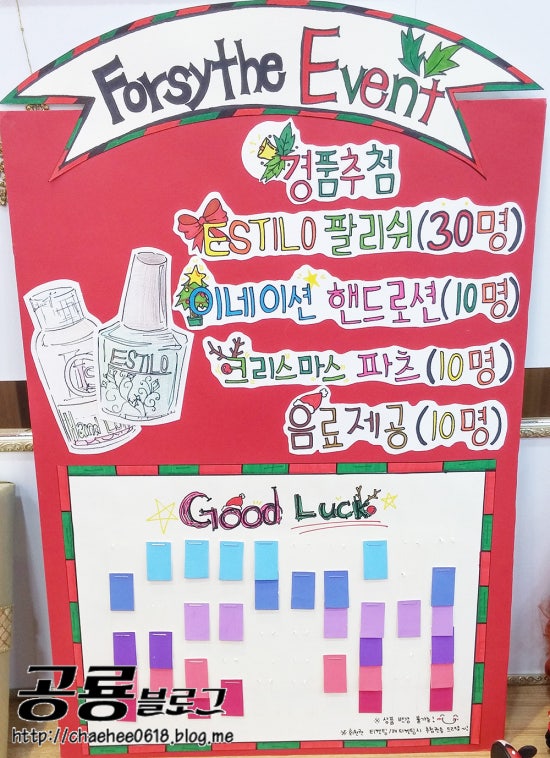 Forsythe Event
경품추첨
ESTILO 팔리쉬(30명)
이네이션 핸드로션(10명)
크리스마스 파츠(10명)
음료제공(10명)
ESTILO
Good Luck
※ 상품 변경 불가능!
공룡블로그
http://chaehee0618.blog.me